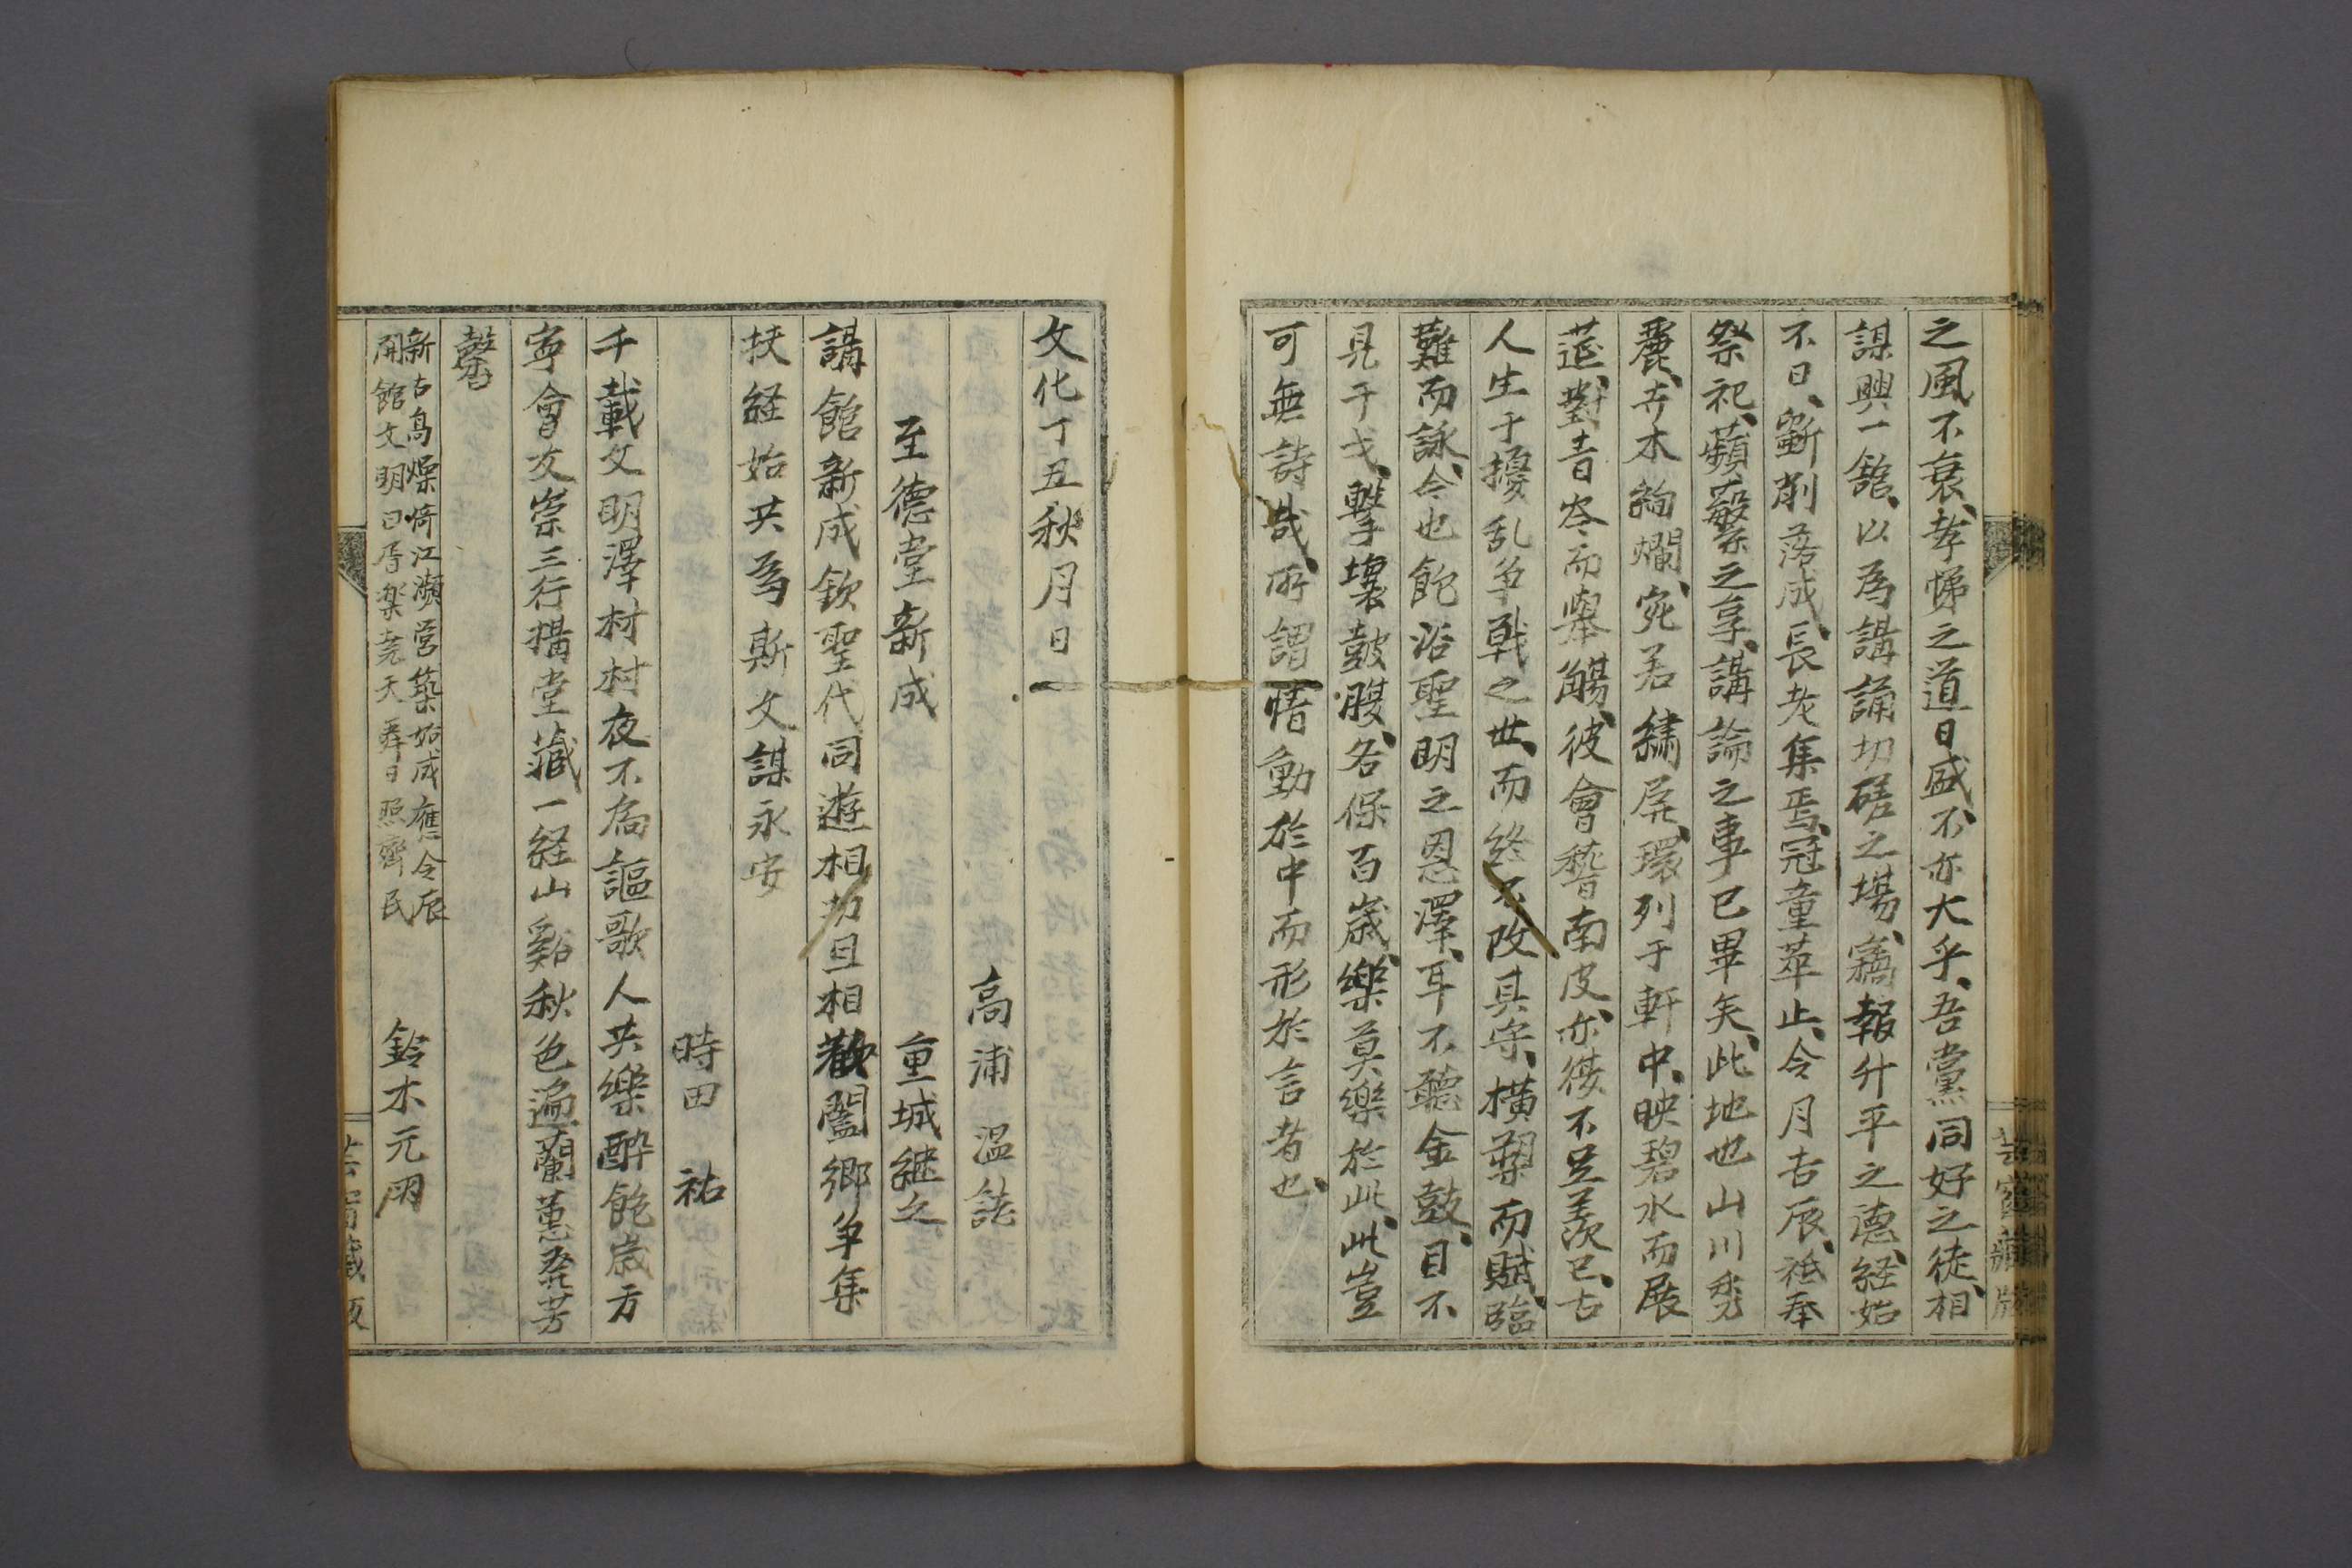 之風不衰、孝悌之道日盛、不亦大乎、吾黨同好之徒、相
謀興一館、以為講誦切磋之場、寓報升平之德、経始
不日、斷削落成、長老集焉、冠童萃止、令月吉辰、祗奉
祭祀、蘋蘩之享、講論之事已畢矣、此地也山川秀
麗、卉木絢爛、宛若繡屏、環列于軒中、映碧水而展
莚、對青岑而舉觴、彼會稽南皮、亦復不足羨已、古
人生于擾乱争戰之世、而終不改其守、橫槊而賦、臨
難而詠、今也飽浴聖明之恩澤、耳不聽金鼓、目不
見干戈、擊壤鼓腹、各保百歲、樂莫樂於此、此豈
可無詩哉、所謂情動於中而形於言者也、
芸窗藏版
文化丁丑秋月日
高浦溫誌
至德堂新成
重城継之
講館新成欽聖代同遊相切且相歡闔郷争集
挾経始共為斯文謀永安
時田祐
千載文明澤村村夜不為謳歌人共樂酔飽歲方
寧會友崇三行搆堂藏一経山谿秋色遍蘭蕙發芳
馨
新古鳥燥倚江瀕営築始成應令辰
開館文明日属楽尭天舜日照齊民
鈴木元朋
芸窗藏版